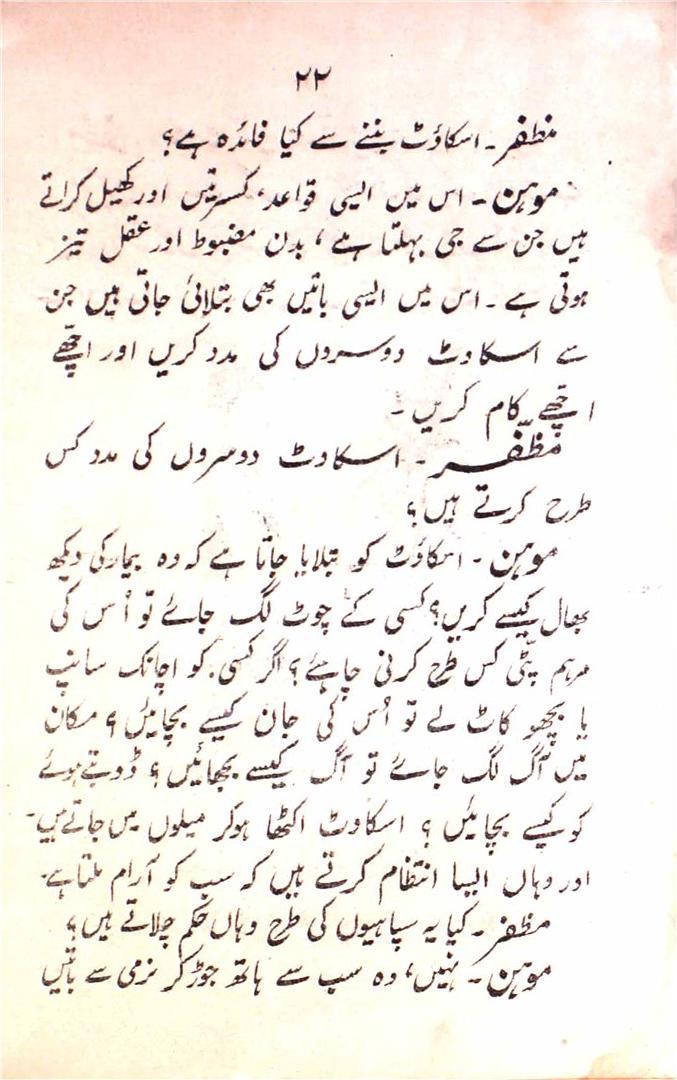 ۲۲
مظفر ۔ اسکاؤٹ بننے سے کیا فائدہ ہے؟
موہن ۔ اس میں ایسی قواعد، کسرتیں اور کھیل کراتے
ہیں جن سے جی بہلتا ہے، بدن مضبوط اور عقل تیز
ہوتی ہے ۔ اس میں ایسی باتیں بھی بتلائی جاتی ہیں جن
سے اسکاوٹ دوسروں کی مدد کریں اور اچھّے
اچھّے کام کریں ۔
مظّفر ۔ اسکاوٹ دوسروں کی مدد کس
طرح کرتے ہیں؟
موہن ۔ اسکاؤٹ کو بتلایا جاتا ہے کہ وہ بیمار کی دیکھ
بھال کیسے کریں؟ کسی کے چوٹ لگ جائے تو اُس کی
مرہم پٹّی کس طرح کرنی چاہئے؟ اگر کسی کو اچانک سانپ
یا بچھو کاٹ لے تو اُس کی جان کیسے بچائیں؟ مکان
میں آگ لگ جائے تو آگ کیسے بجھائیں؟ ڈوبتے ہوئے
کو کیسے بچائیں؟ اسکاوٹ اکٹھا ہوکر میلوں میں جاتے ہیں۔
اور وہاں ایسا انتظام کرتے ہیں کہ سب کو آرام ملتا ہے۔
مظفر ۔ کیا یہ سپاہیوں کی طرح وہاں حکم چلاتے ہیں؟
موہن ۔ نہیں، وہ سب سے ہاتھ جوڑ کر نرمی سے باتیں